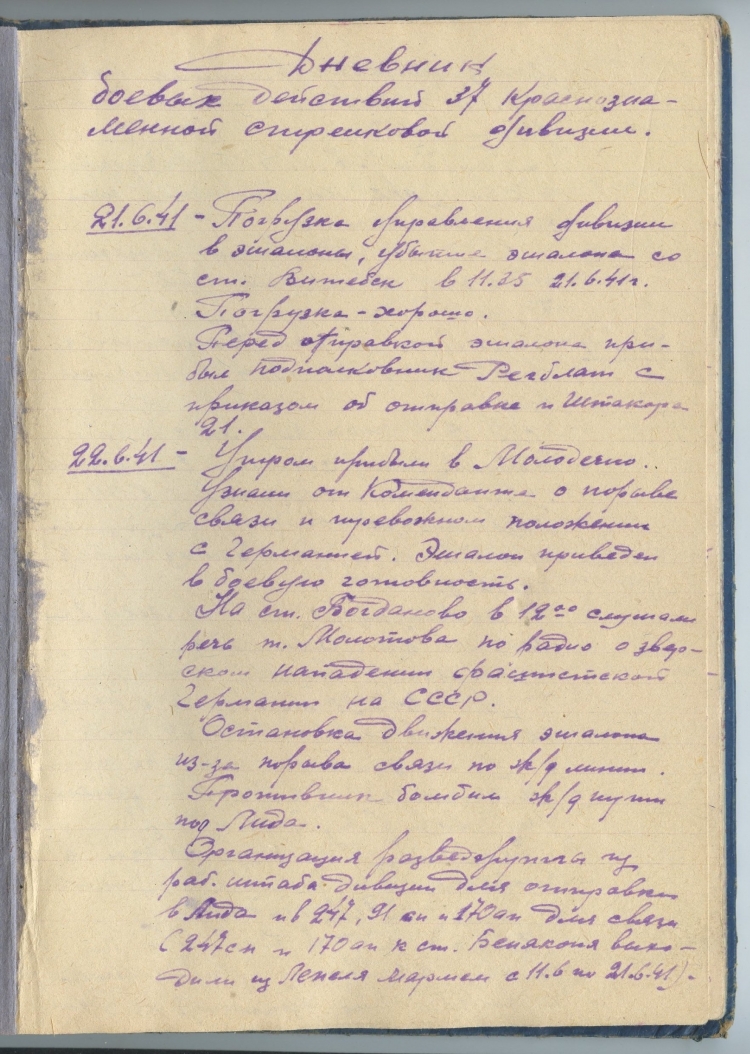 Дневник
боевых действий 37 Краснозна-
менной стрелковой дивизии.
21.6.41 - Погрузка управления дивизии
в эшелоны, убытие эшелона со
ст. Витебск в 11.35 21.6.41г.
Погрузка - хорошо.
Перед отправкой эшелона при-
был подполковник Регблат с
приказом об отправке и Штакора
21.
22.6.41 - Утром прибыли в Молодечно..
Узнали от Коменданта о порыве
связи и тревожном положении
с Германией. Эшелон приведен
в боевую готовность.
На ст. Богданово в 12оо слушали
речь т. Молотова по радио о звер-
ском нападении фашистской
Германии на СССР.
Остановка движения эшелона
из-за порыва связи по ж/д линии.
Противник бомбил ж/д пути
под Лида.
Организация разведгруппы из
раб. штаба дивизии для отправки
в Лида и в 247, 91 сп и 170 ап для связи
(247 сп и 170 ап к ст. Бенякони выхо-
дили из Лепеля маршем с 11.6 по 21.6.41).-